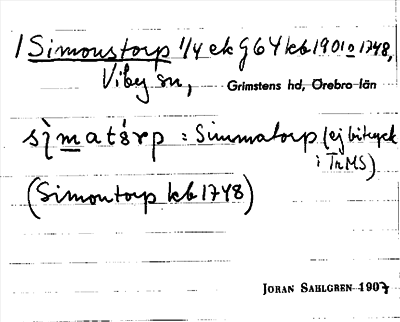 / Simonstorp 1/4 ek G 64 kb 1901 o 1748,
Viby sn, Grimstens hd, Örebro län
sìmatårp : Simmatorp (ej bitryck
i TrMS)
(Simontorp kb 1748)
JORAN SAHLGREN 1907